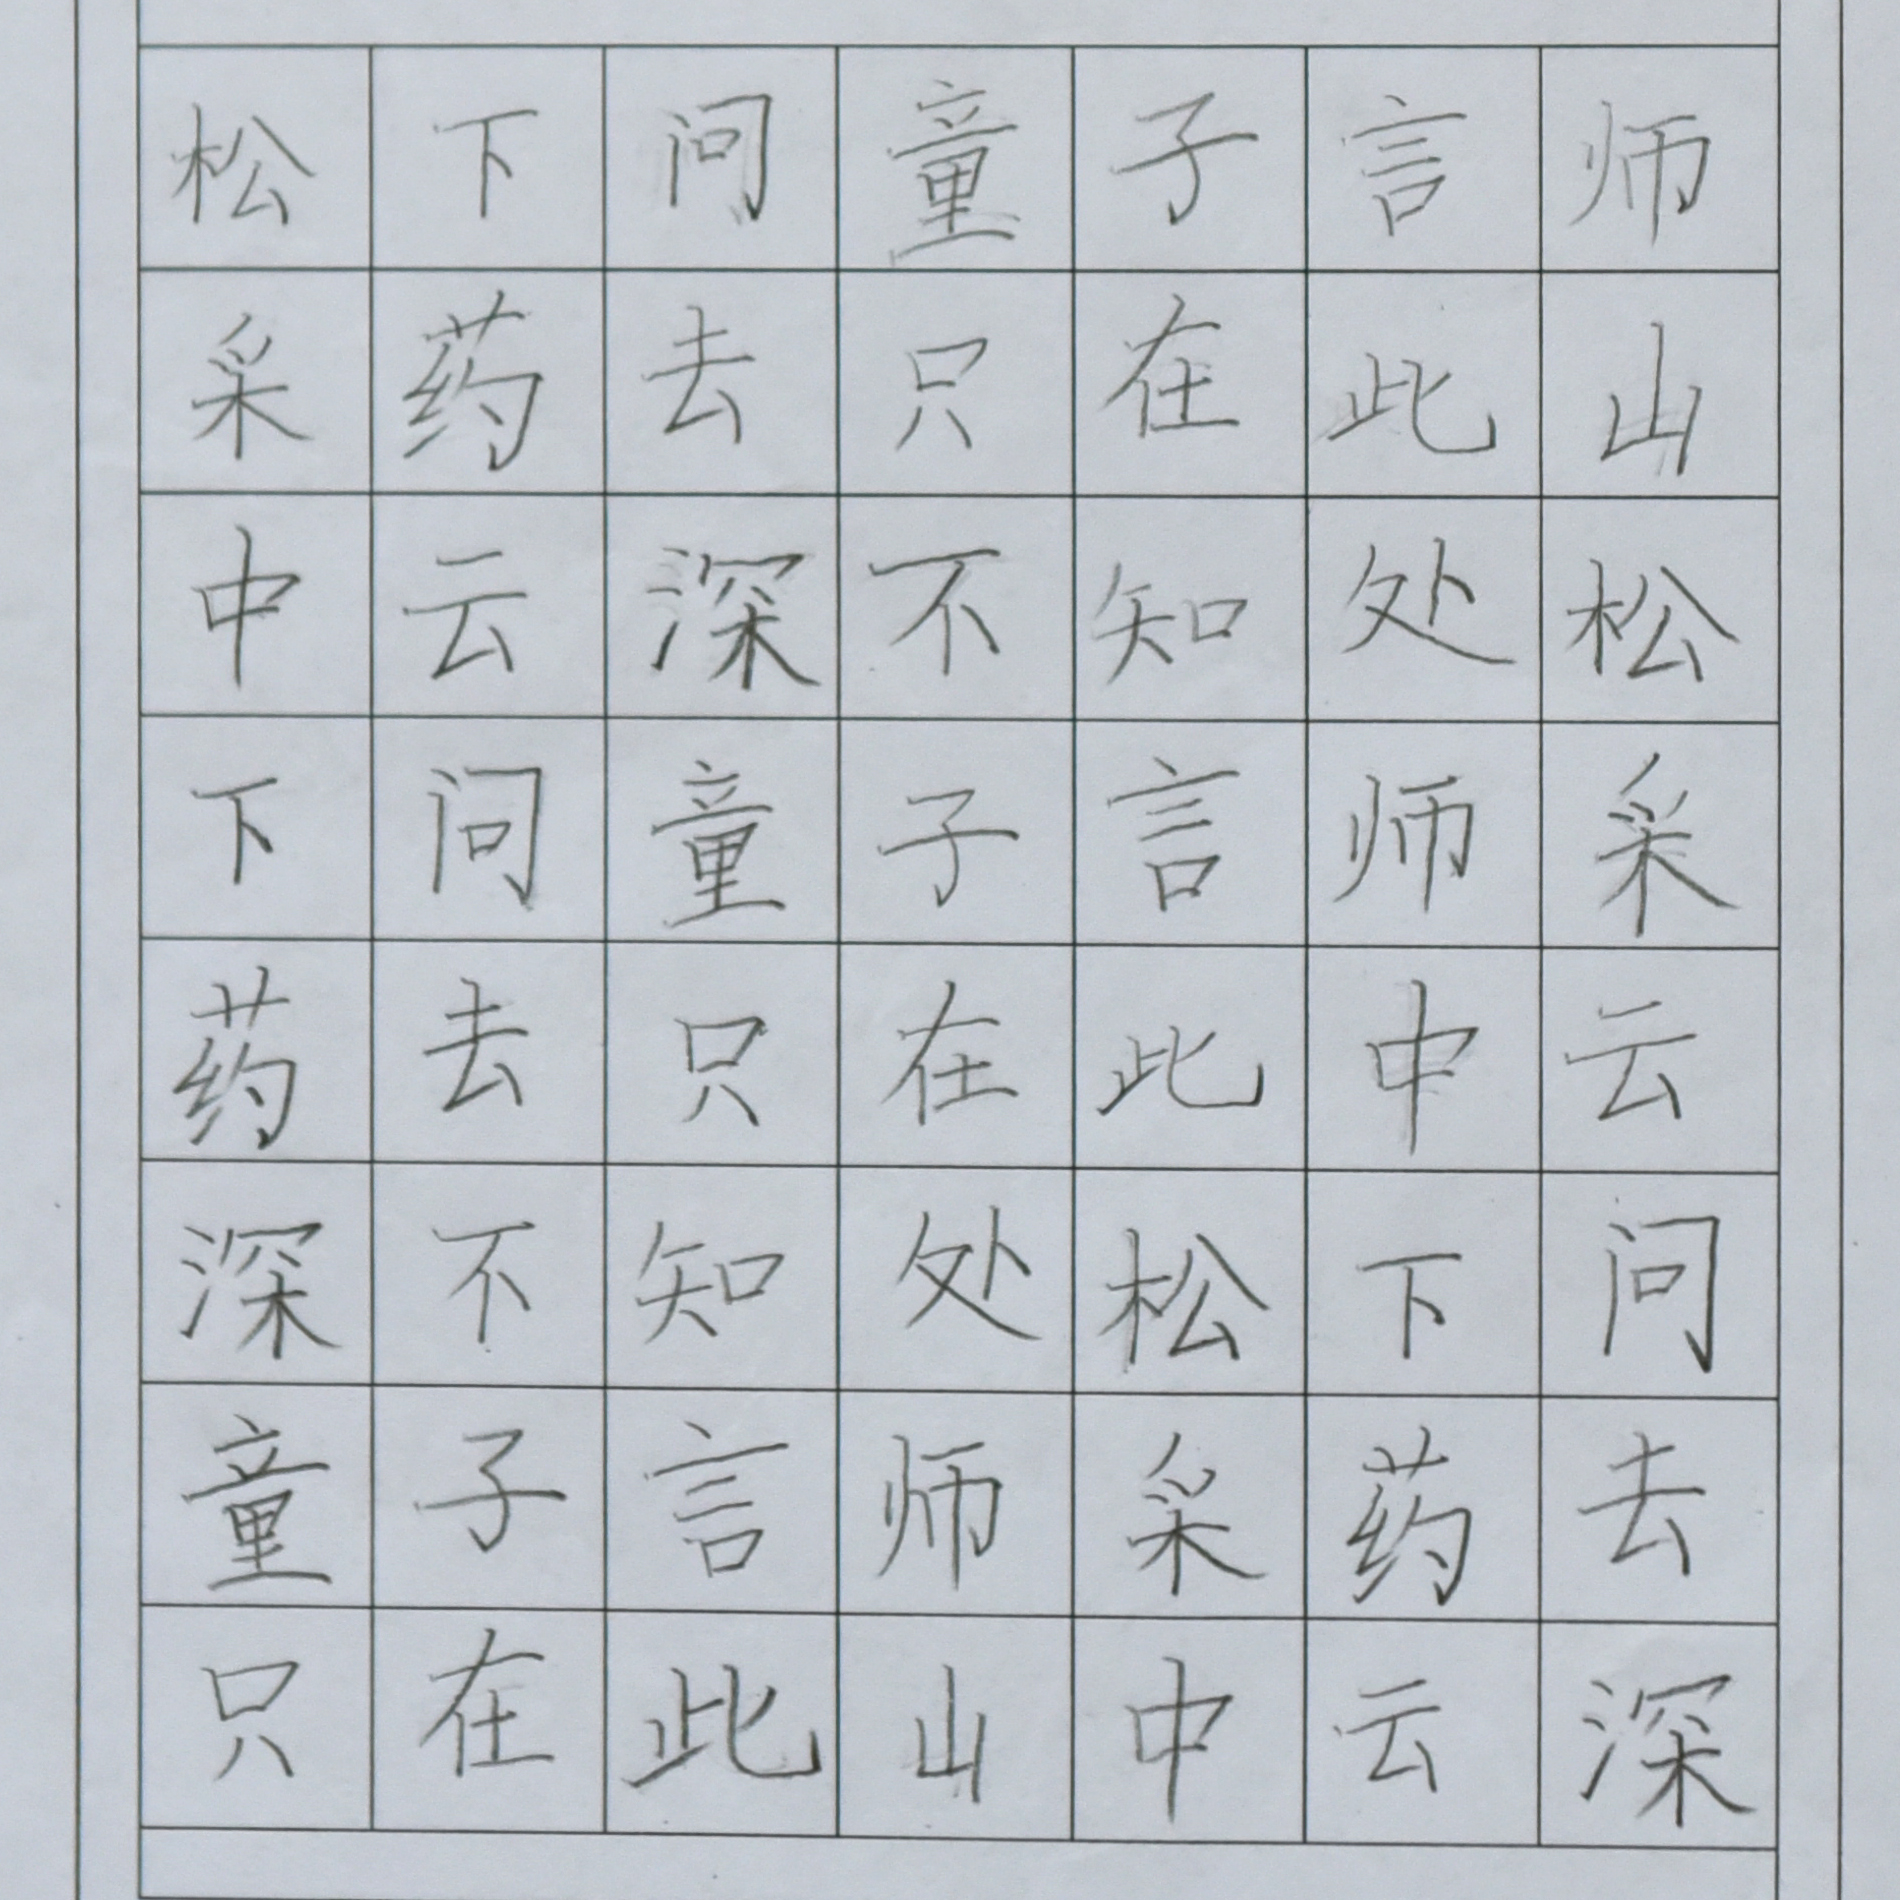 松下问童子言师
采药去只在此山
中云深不知处松
下问童子言师采
药去只在此中云
深不知处松下问
童子言师采药去
只在此山中云深